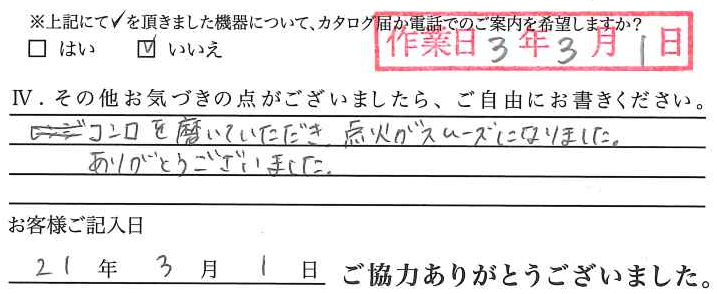 ※上記にて✓を頂きました機器について、カタログ届か電話でのご案内を希望しますか?
□ はい ☑ いいえ
作業日 3年3月1日
Ⅳ．その他お気づきの点がございましたら、ご自由にお書きください。
コンロを磨いていただき、点火がスムーズになりました。
ありがとうございました。
お客様ご記入日
21年3月1日 ご協力ありがとうございました。